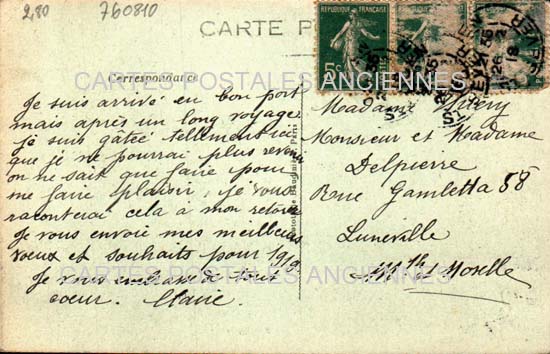 2,80
760810
CARTE P
REPUBLIQUE FRANÇAISE
Correspondance
CARTES POSTALES ANCIENNES
Je suis arrivé en bon port
mais après un long voyage
je suis gâtée tellement ici
que je ne pourrai plus revenir
on ne sait que faire pour
me faire plaisir, je vous
raconterai cela à mon retour
Je vous envoie mes meilleurs
vœux et souhaits pour 1919
Je vous embrasse de tout
coeur. Claire
Madame
Monsieur et Madame
Delpierre
Rue Gambetta 58
Luneville
Mthe Moselle
CARTES POSTALES ANCIENNES